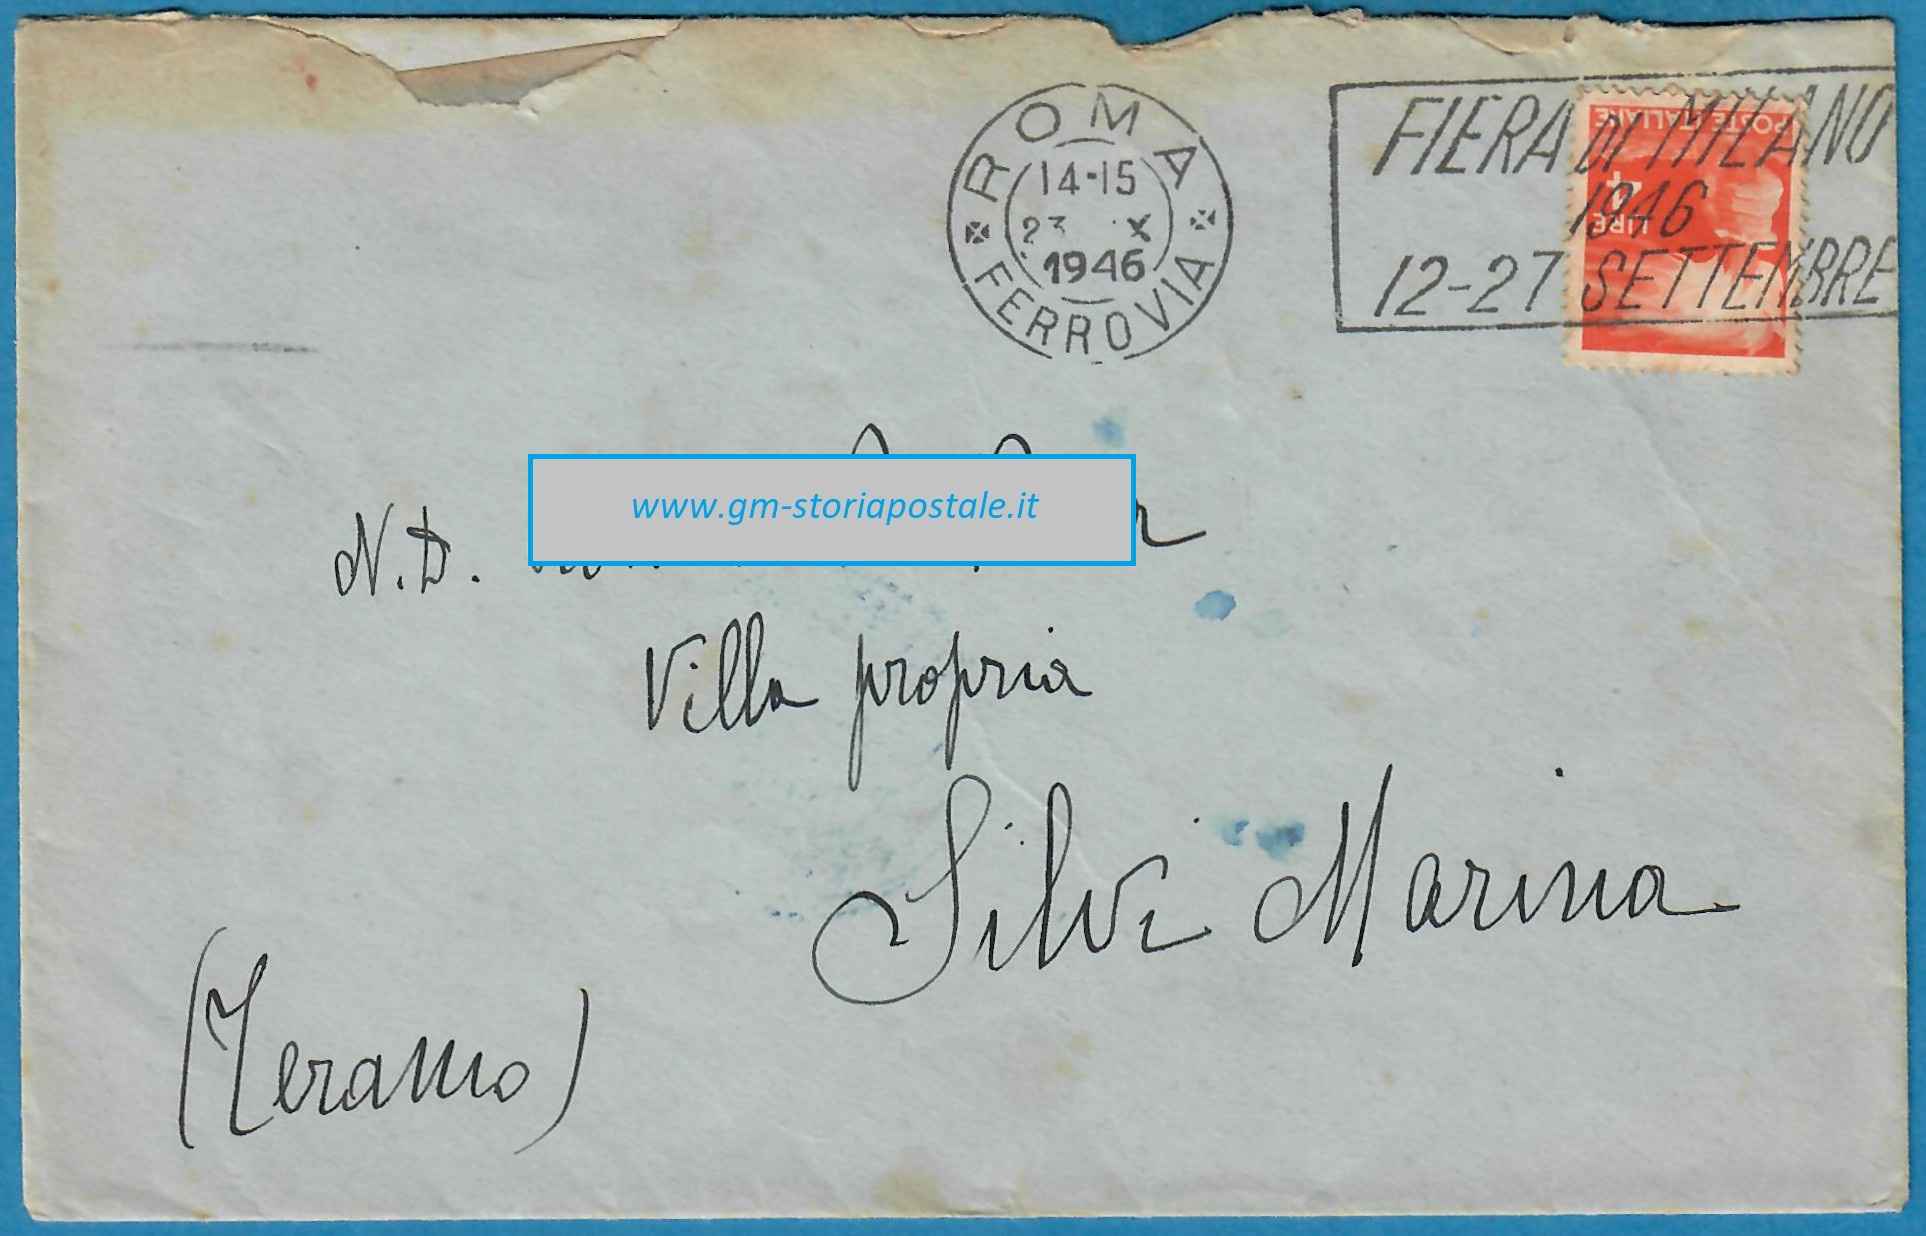 ROMA
14-15
23 X
1946
FERROVIA
FIERA DI MILANO
1946
12-27 SETTEMBRE
POSTE ITALIANE
LIRE 4
www.gm-storiapostale.it
N.D.
Villa propria
Silvi Marina
(Teramo)